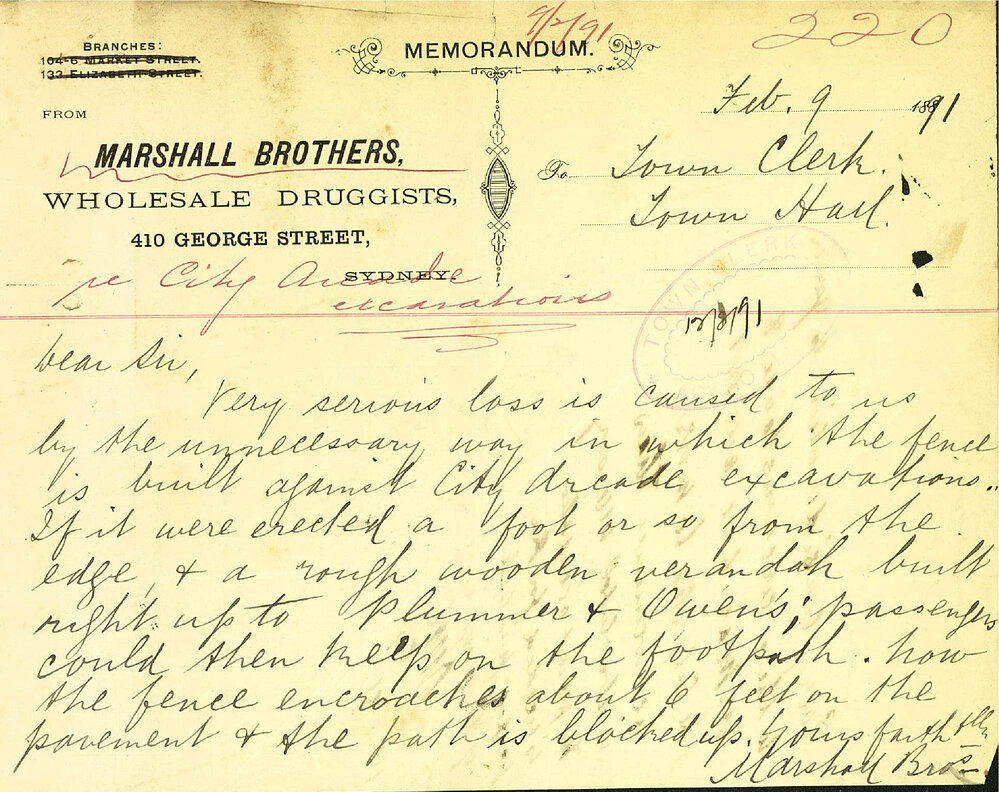 9/2/91
220
BRANCHES:
104-6 MARKET STREET.
133 ELIZABETH STREET.
MEMORANDUM.
FROM
Feb. 9 1891
MARSHALL BROTHERS,
WHOLESALE DRUGGISTS,
410 GEORGE STREET,
SYDNEY.
To Town Clerk.
Town Hall.
re City Arcade
excavations
TOWN CLERK
12/2/91
Dear Sir,
Very serious loss is caused to us
by the unnecessary way in which the fence
is built against City Arcade excavations..
If it were erected a foot or so from the
edge, & a rough wooden verandah built
right up to Plummer & Owen's; passengers
could then keep on the footpath. Now
the fence encroaches about 6 feet on the
pavement & the path is blocked up. Yours faithflly
Marshall Bros